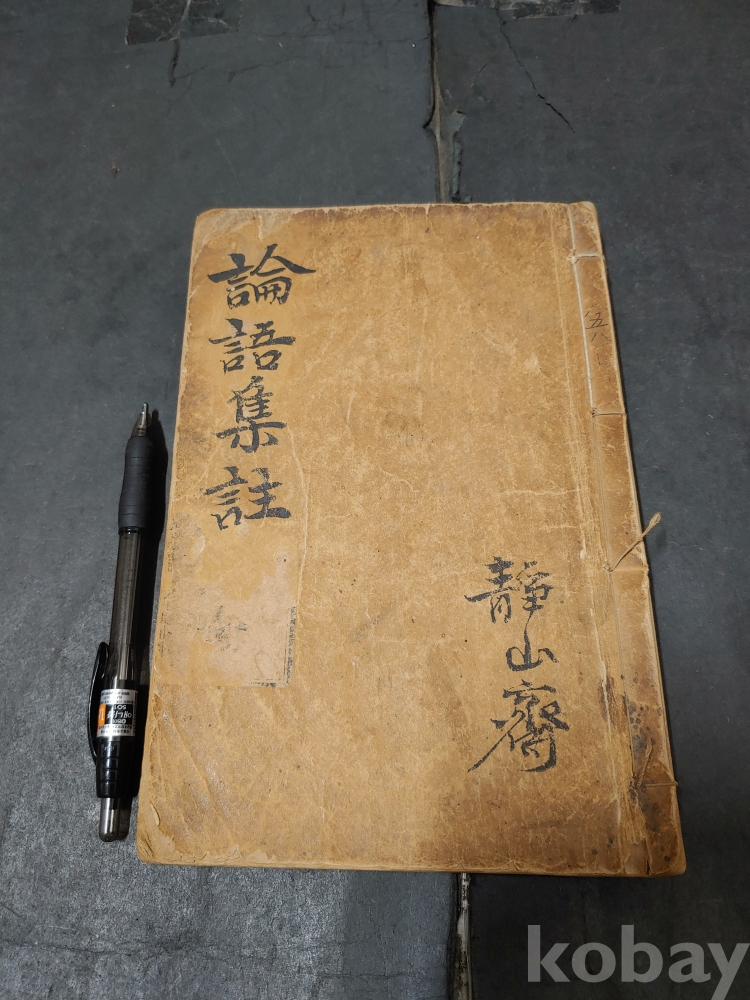 論語集註
靜山齋
五八
kobay